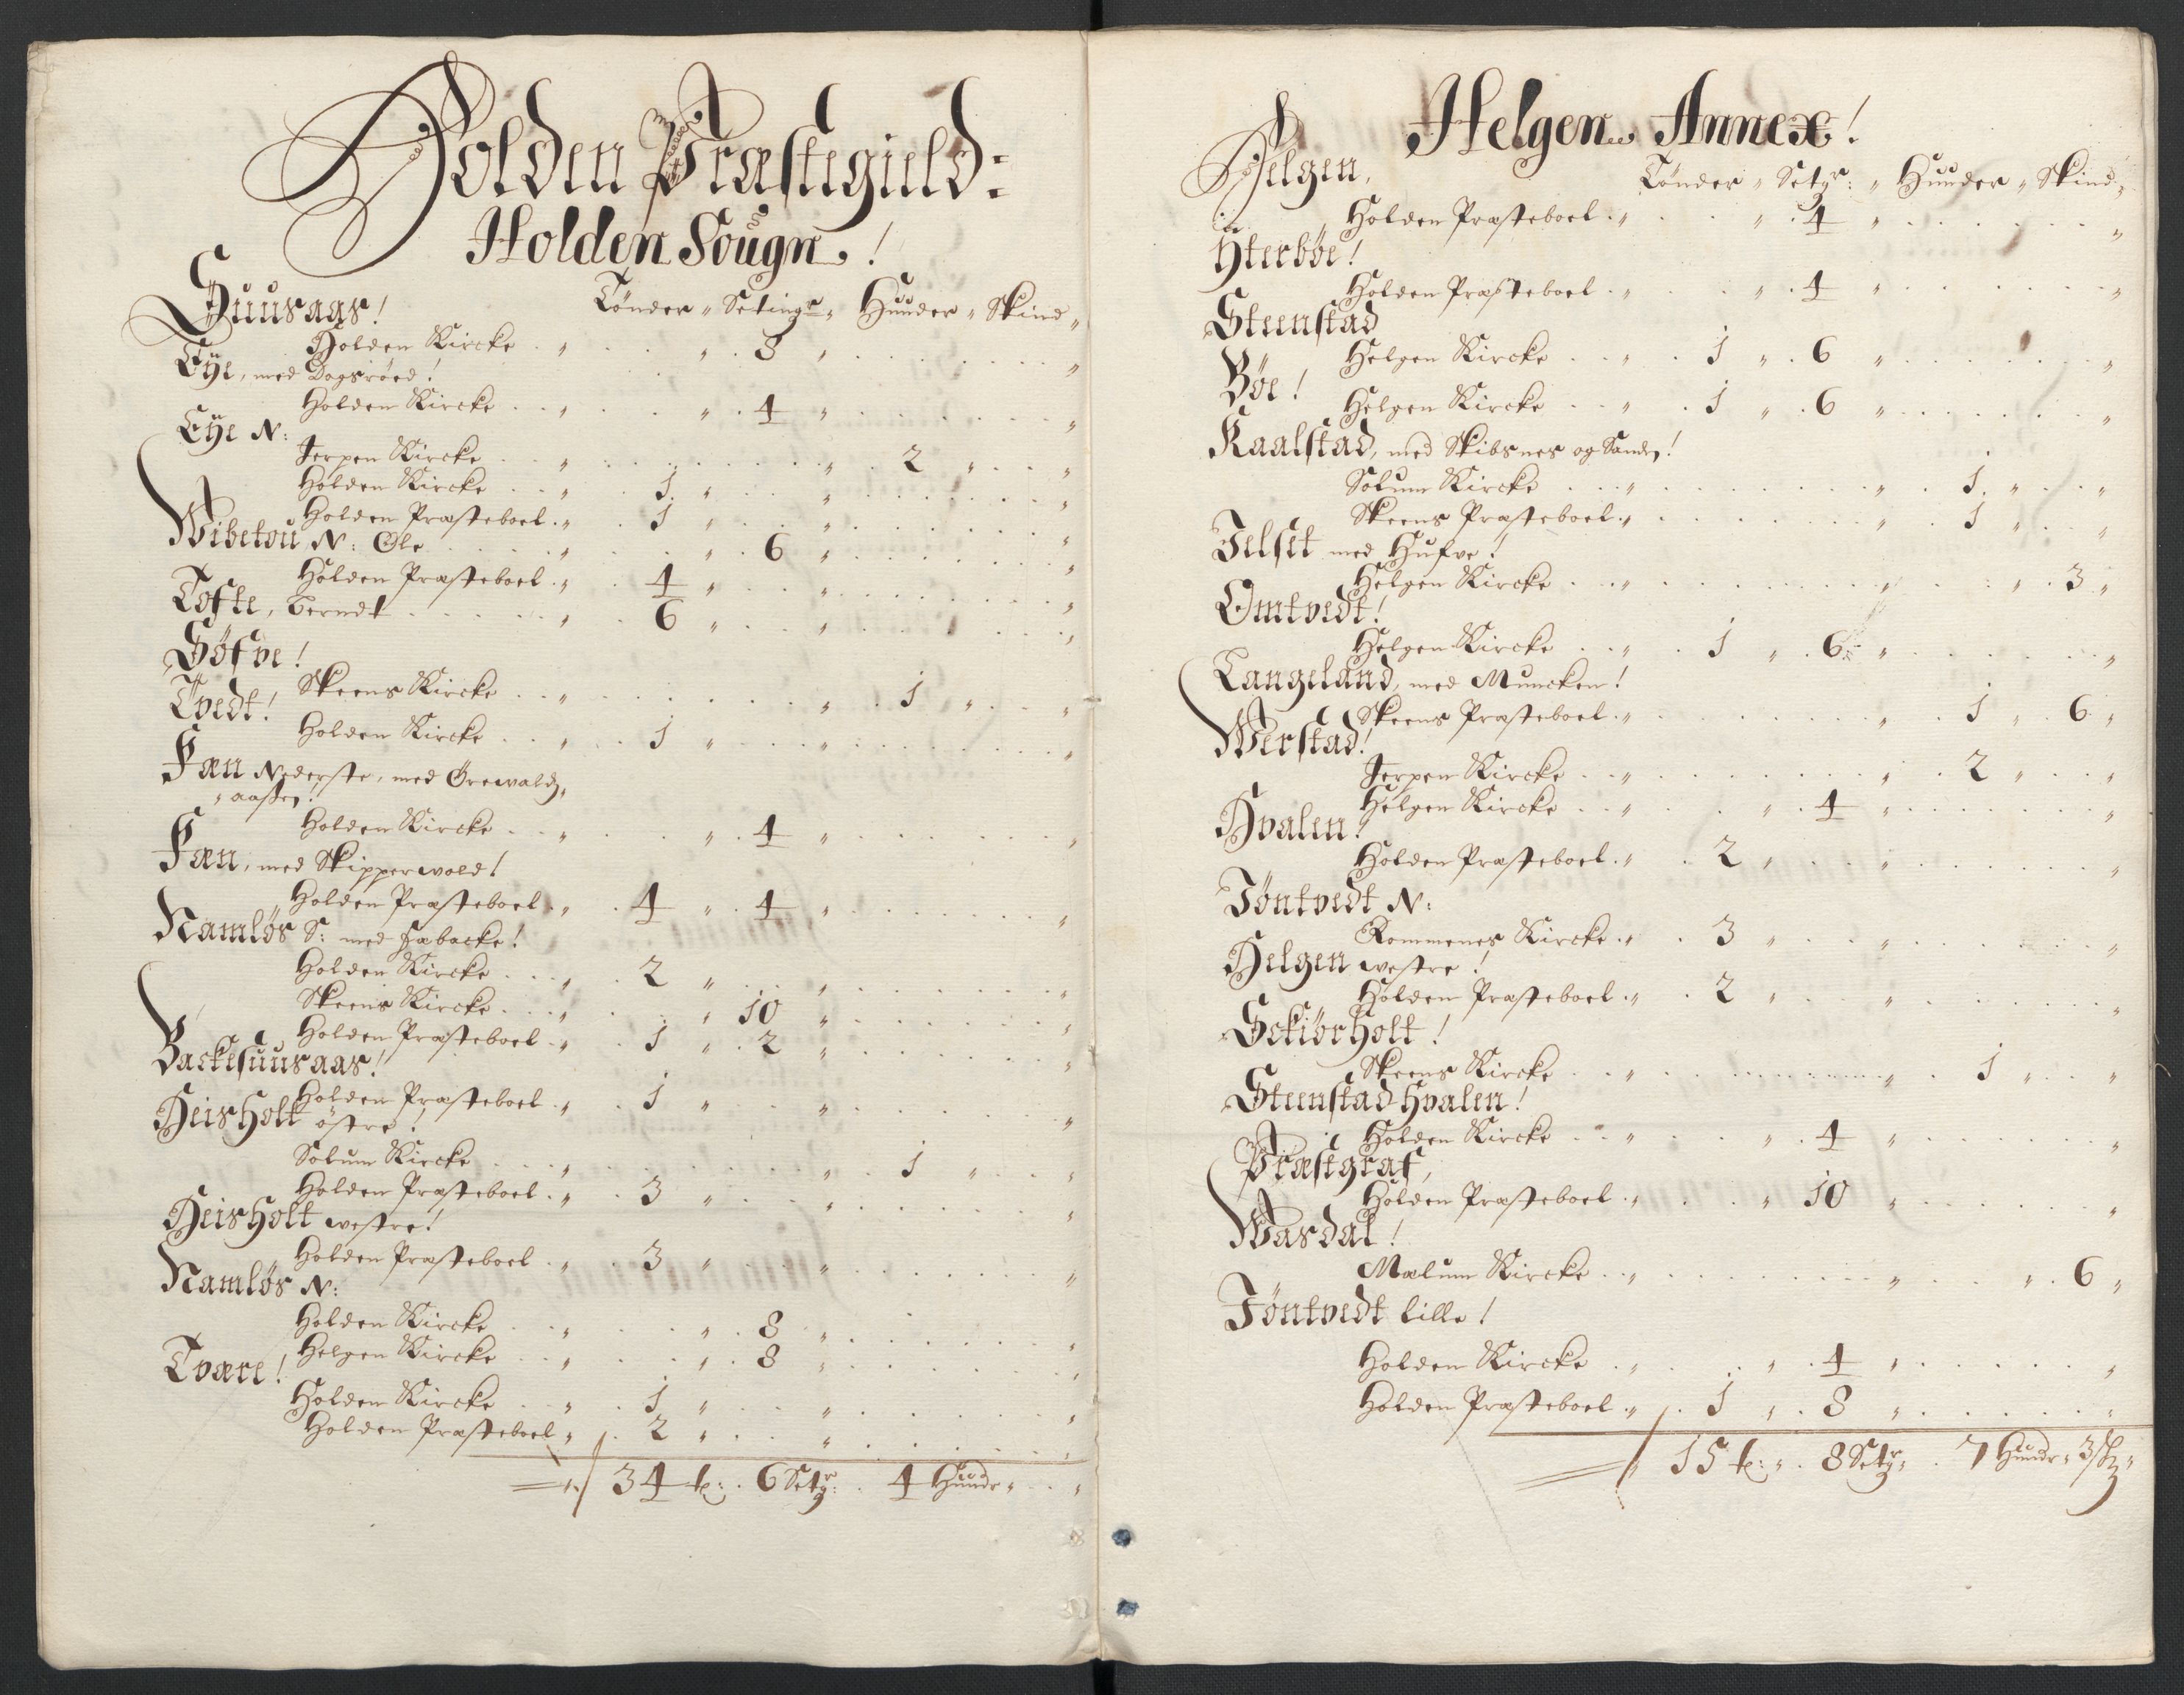 Holden Præstegield:
Holden Sougn!
Tønder " Setingr " Hunder " Skind "
Suusaas!
Holden Kircke . " . . . " . 8 "
Eÿe, med Dagsrøed!
Holden Kircke . . " . . . " . 4 "
Eÿe N:
Jerpen Kircke . . " . . . " . 2 "
Holden Kircke . . " . 1 "
Holden Præsteboel . " . 1 "
Wibetou N: Ole . . . " . . . " . 6 "
Holden Præsteboel . " . 4 "
Tofte, Berndt . . . " . 6 "
Søfve!
Skeens Kircke . . " . . . " . 1 "
Tvedt!
Holden Kircke . . " . 1 "
Fæn Nederste, med Örewaldz
" aasen!
Holden Kircke . . " . . . " . 4 "
Fæn, med Skipperwold!
Holden Præsteboel . " . 4 " . 4 "
Namløs S: med Habacke!
Holden Kircke . . " . 2 "
Skeens Kircke . . " . . . " 10 "
Holden Præsteboel . " . 1 " . 2 "
Backesuusaas!
Holden Præsteboel . " . 1 "
Heisholt östre!
Solum Kircke . . " . . . " . 1 "
Holden Præsteboel . " . 3 "
Heisholt westre!
Holden Præsteboel . " . 3 "
Namløs N:
Holden Kircke . . " . . . " . 8 "
Helgen Kircke . . " . . . " . 8 "
Tvære!
Holden Kircke . . " . 1 "
Holden Præsteboel " . 2 "
34 t: . 6 Setgr: . 4 Hundr "
Helgen Annex!
Tønder " Setgr: " Hunder " Skind "
Helgen,
Holden Præsteboel . " . . . " . 4 "
Ÿterbøe!
Holden Præsteboel . " . . . " . 4 "
Steenstad
Helgen Kircke . . " . 1 " . 6 "
Bøe!
Helgen Kircke . . " . 1 " . 6 "
Kaalstad, med Skibsnes og Sanden!
Solum Kircke . . " . . . " . 1 "
Skeens Præsteboel . " . . . " . 1 "
Jelset med Hufve!
Helgen Kircke . . " . . . " . 3 "
Omtvedt!
Helgen Kircke . . " . 1 " . 6 "
Langeland, med Muncken!
Skeens Præsteboel . " . . . " . 1 " . 6 "
Werstad!
Jerpen Kircke . . " . . . " . 2 "
Helgen Kircke . . " . . . " . 4 "
Hvalen!
Holden Præsteboel . " . 2 "
Jöntvedt N:
Rommenes Kircke . " . 3 "
Helgen westre!
Holden Præsteboel . " . 2 "
Sckiørholt!
Skeens Kircke . . " . . . " . 1 "
Steenstad Hvalen!
Holden Kircke . . " . . . " . 4 "
Præstgraf,
Holden Præsteboel . " . . . " 10 "
Wasdal!
Mælum Kircke . . " . . . " . 6 "
Jöntvedt lille!
Holden Kircke . " . . . " . 4 "
Holden Præsteboel . " . 1 " . 8 "
15 t: " . 8 Setgr " . 7 Hundr " 3 sk "